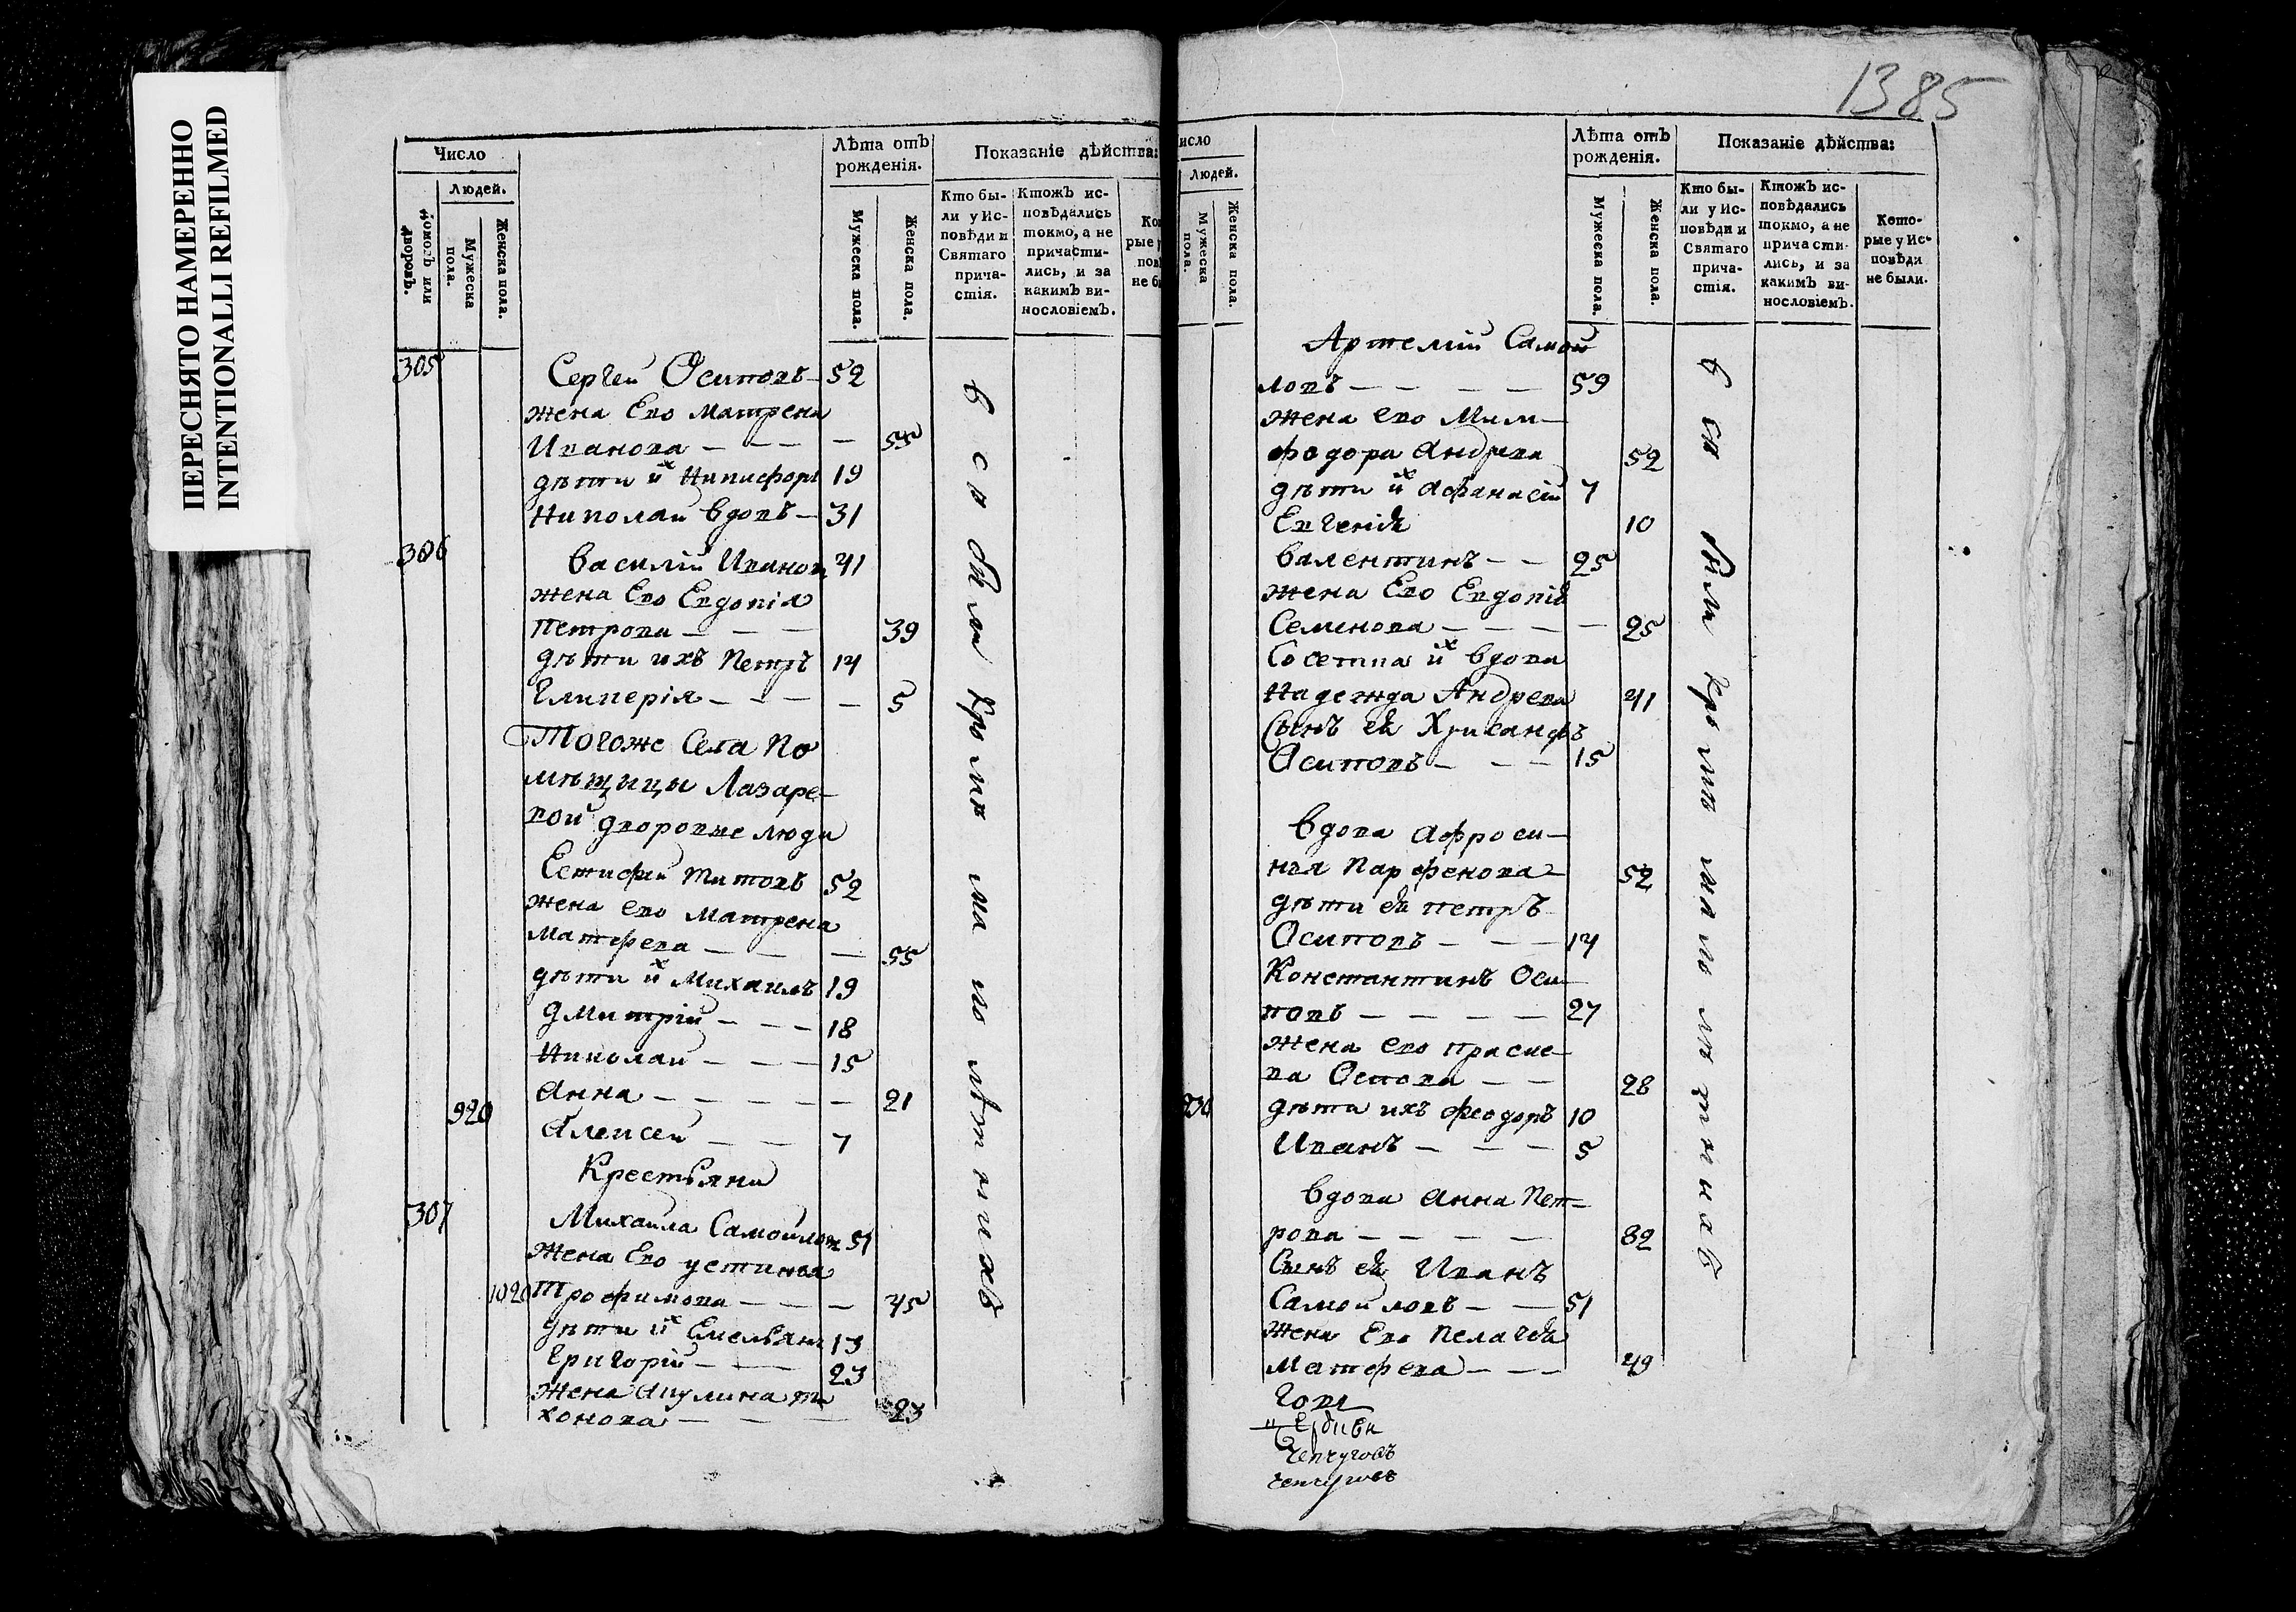 ПЕРЕСНЯТО НАМЕРЕННО
INTENTIONALLI REFILMED
Число
Людей.
домовъ или дворовъ.
Мужеска пола.
Женска пола.
Лѣта отъ рожденія.
Мужеска пола.
Женска пола.
Показаніе дѣйства:
Кто бы-
ли у Ис-
повѣди и
Святаго
прича-
стія.
Ктожъ ис-
повѣдались
токмо, а не
причасти-
лись, и за
какимъ ви-
нословіемъ.
305 Сергей Осиповъ 52
жена Его Матрена
Иванова 55
дѣти их Никифоръ 19
Николай вдовъ 31
306 Василій Ивановъ 41
жена Его Евдокія
Петрова 39
дѣти ихъ Петръ 14
Гликерія 5
Тогоже Села По
мѣщицы Лазаре-
вой дворовые люди
Естифей Титовъ 52
жена его Матрена
Матфева 55
дѣти их Михаилъ 19
Дмитрій 18
Николай 15
Анна 21
920 Алексей 7
Крестьяне
307 Михаила Самойловъ 51
жена Его устинья
1020 Трофимова 45
дѣти их Емельянъ 13
Григорій 23
жена Акулина ти
хонова 23
всѣ были кромѣ малолѣтнихъ
1385
исло
Людей.
Мужеска пола.
Женска пола.
Лѣта отъ
рожденія.
Мужеска пола.
Женска пола.
Показаніе дѣйства:
Кто бы-
ли у Ис-
повѣди и
Святаго
прича-
стія.
Ктожъ ис-
повѣдались
токмо, а не
причасти-
лись, и за
какимъ ви-
нословіемъ.
Кото-
рые у Ис-
повѣди
не были.
Артемій Самой
ловъ 59
жена его Мит-
фодора Андрева 52
дѣти их Афанасій 7
Евгенія 10
Валентинъ 25
жена Его Евдокія
Семенова 25
Сосетка их вдова
Надежда Андрева 41
Сынъ ея Хрисанфъ
Осиповъ 15
вдова Афроси-
нья Парфенова 52
дѣти ея петръ
Осиповъ 14
Константинъ Оси-
повъ 27
жена его праске-
ва Осипова 28
930 дѣти ихъ Феодоръ 10
Иванъ 5
вдова Анна Пет-
рова 82
Сынъ ея Иванъ
Самойловъ 51
жена Его Пелагея
Матфева 49
всѣ были кромѣ малолѣтнихъ
Чепчуговъ
Чепчуговъ